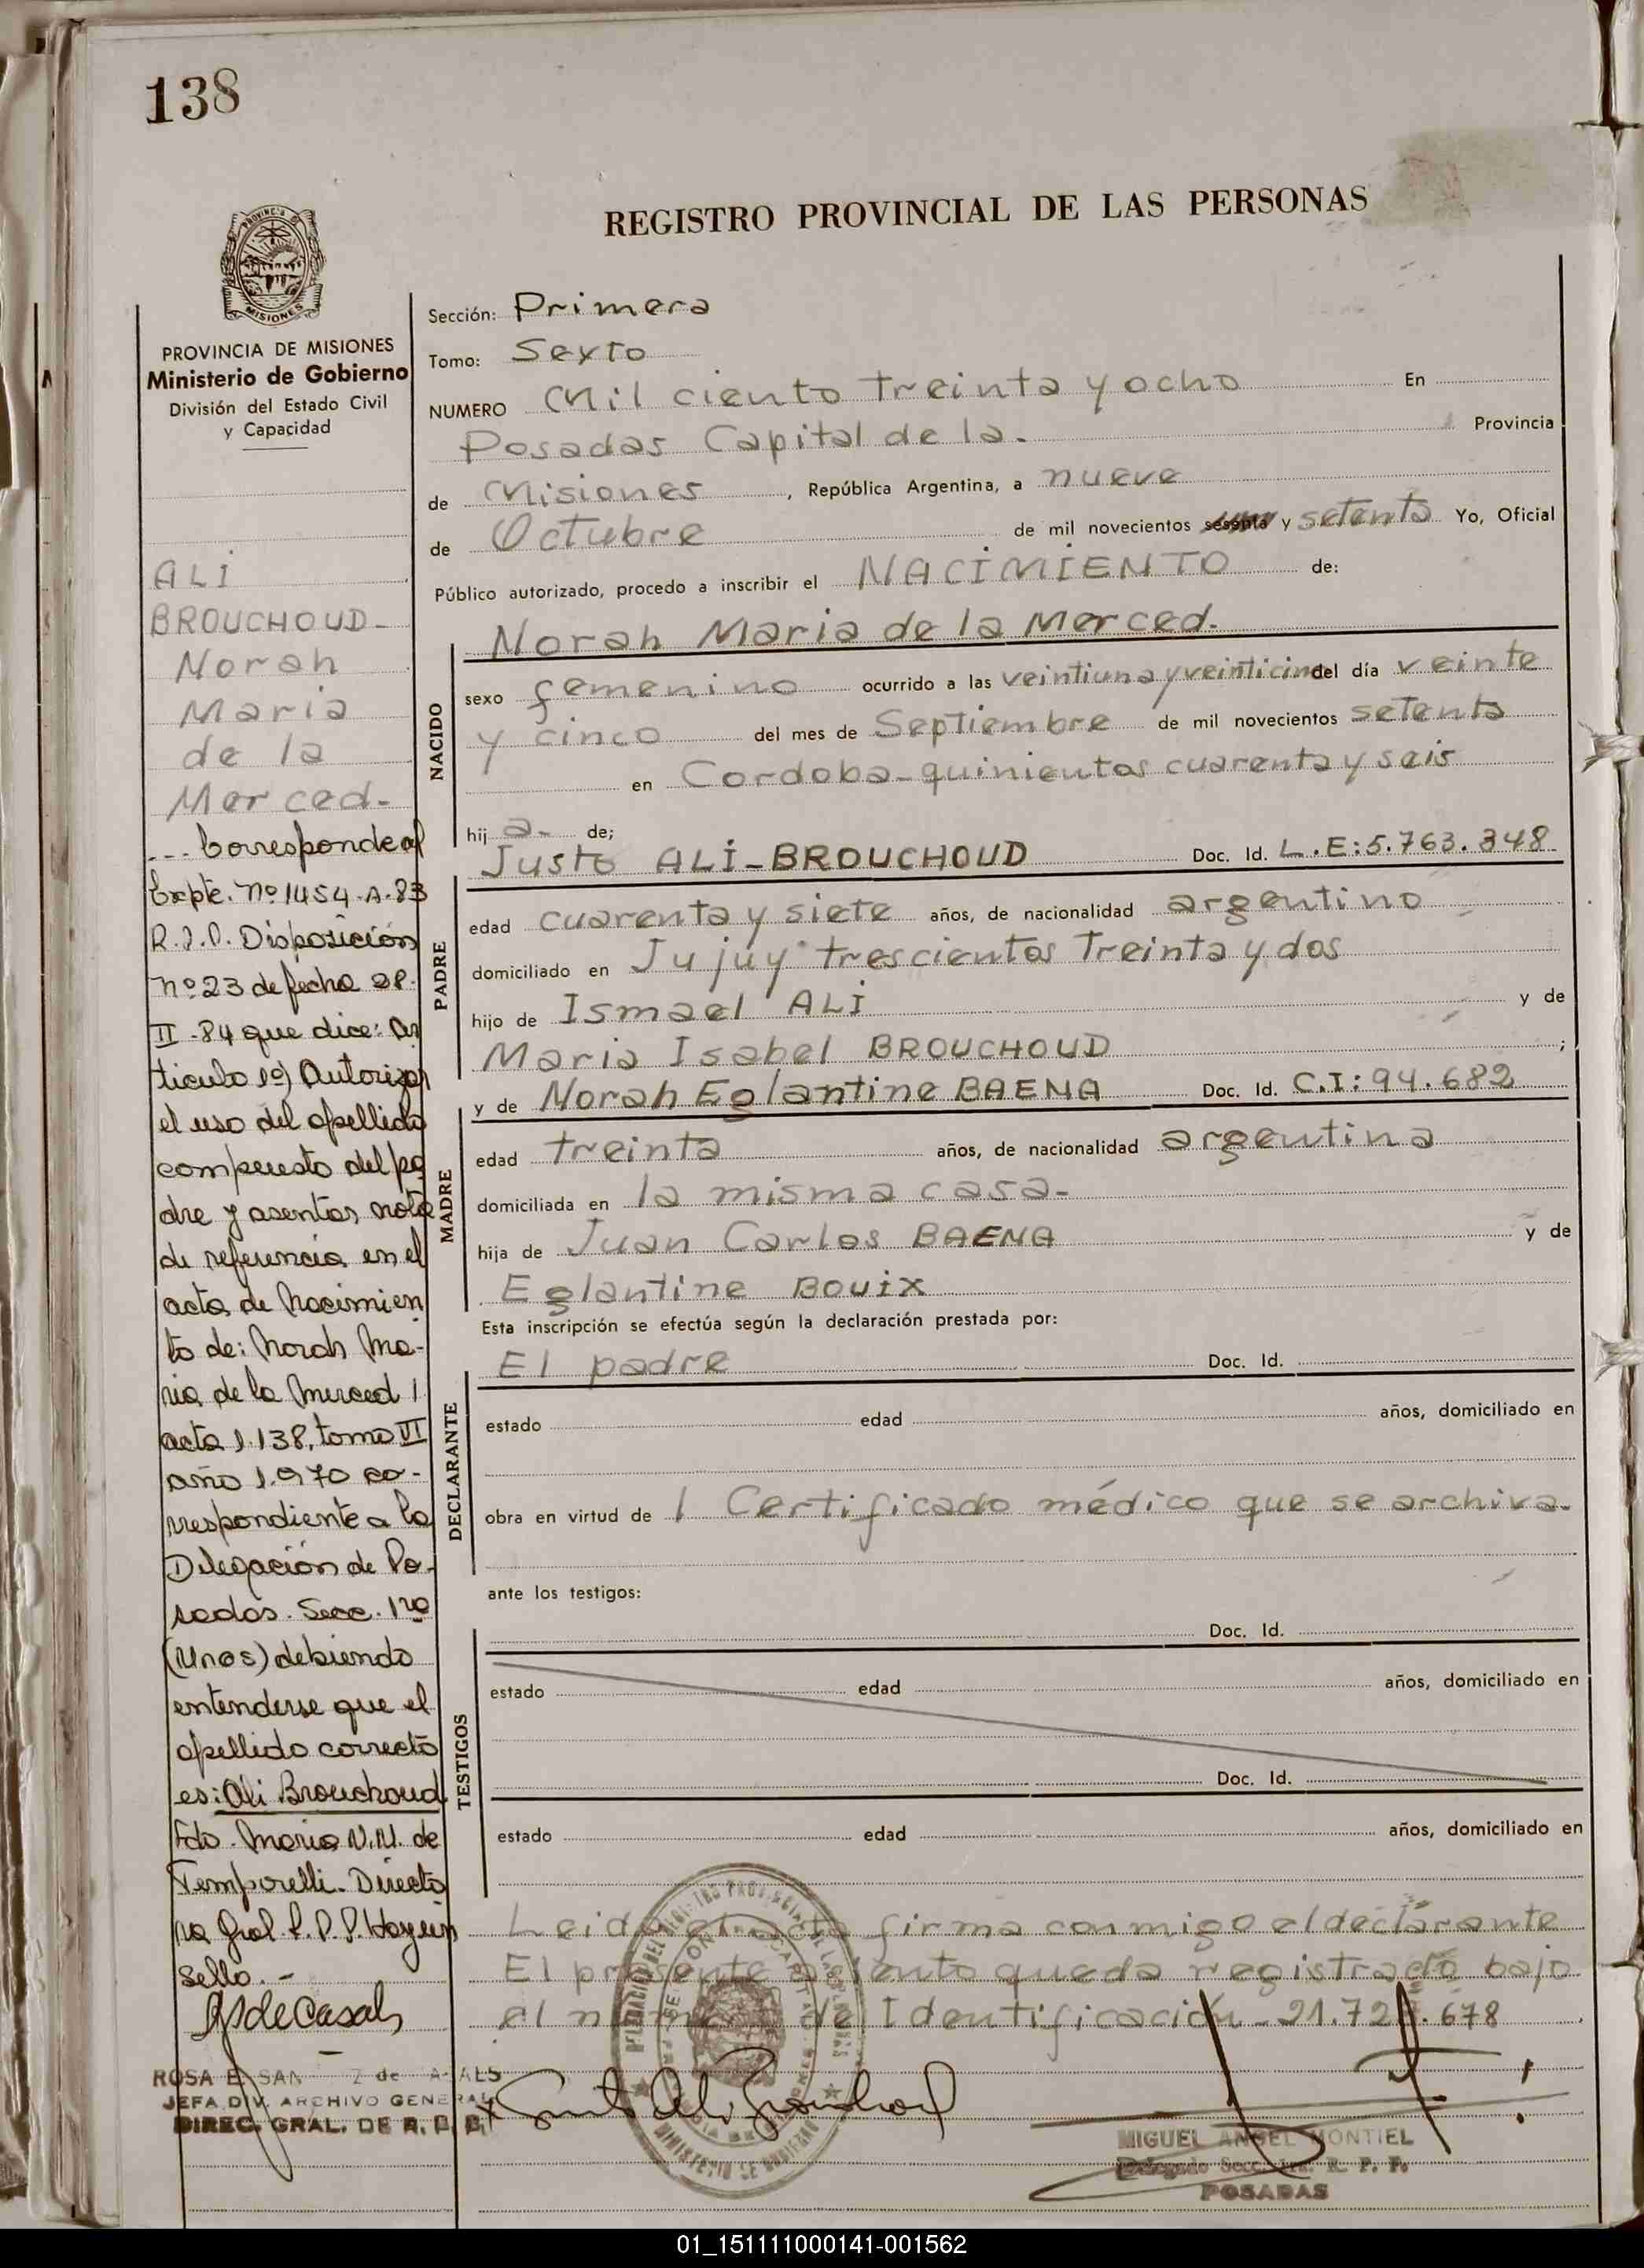 138
REGISTRO PROVINCIAL DE LAS PERSONAS
MISIONES
PROVINCIA DE MISIONES
Ministerio de Gobierno
División del Estado Civil
y Capacidad
ALI
BROUCHOUD-
Norah
Maria
de la
Merced-
--- Corresponde al
Expte. Nº 1454-A-83
R.P.P. Disposición
nº 23 de fecha 28-
II-84 que dice: Ar
tículo 1º) Autorizar
el uso del apellido
compuesto del pa
dre y asentar nota
de referencia en el
acta de Nacimien
to de: Norah Ma-
ria de la Merced
acta 1.138, tomo VI
año 1.970 co-
rrespondiente a la
Delegación de Po-
sadas. Secc. 1ra
debiendo
entenderse que el
apellido correcto
es: Ali Brouchoud
Fdo. Maria N.M. de
Temporelli. Directo
ra Gral. R.P.P. Hay un
sello.-
ROSA E. SAN
JEFA DIV. ARCHIVO GENERAL
DIREC. GRAL. DE R. P. P.
Sección: Primera
Tomo: Sexto
NUMERO Mil ciento treinta y ocho En
Posadas Capital de la. Provincia
de Misiones, República Argentina, a nueve
de Octubre de mil novecientos sesenta y setenta Yo, Oficial
Público autorizado, procedo a inscribir el NACIMIENTO de:
Norah Maria de la Merced.
NACIDO
sexo femenino ocurrido a las veintiuna y veinticinco del día veinte
y cinco del mes de Septiembre de mil novecientos setenta
en Cordoba-quinientos cuarenta y seis
hij a- de;
Justo ALI-BROUCHOUD Doc. Id. L.E:5.763.348
PADRE
edad cuarenta y siete años, de nacionalidad argentino
domiciliado en Jujuy trescientos treinta y dos
hijo de Ismael ALI y de
Maria Isabel BROUCHOUD ;
y de Norah Eglantine BAENA Doc. Id. C.I:94.682
MADRE
edad treinta años, de nacionalidad argentina
domiciliada en la misma casa-
hija de Juan Carlos BAENA y de
Eglantine BOUIX
Esta inscripción se efectúa según la declaración prestada por:
El padre Doc. Id.
DECLARANTE
estado edad años, domiciliado en
obra en virtud de 1 Certificado médico que se archiva-
ante los testigos:
Doc. Id.
TESTIGOS
estado edad años, domiciliado en
Doc. Id.
estado edad años, domiciliado en
Leida el acta firma conmigo el declarante
El presente asiento queda registrado bajo
el número de Identificación-
Justo Ali Brouchoud
MIGUEL ANGEL MONTIEL
Delegado Secc. 1ra. R. P. P.
POSADAS
01_151111000141-001562